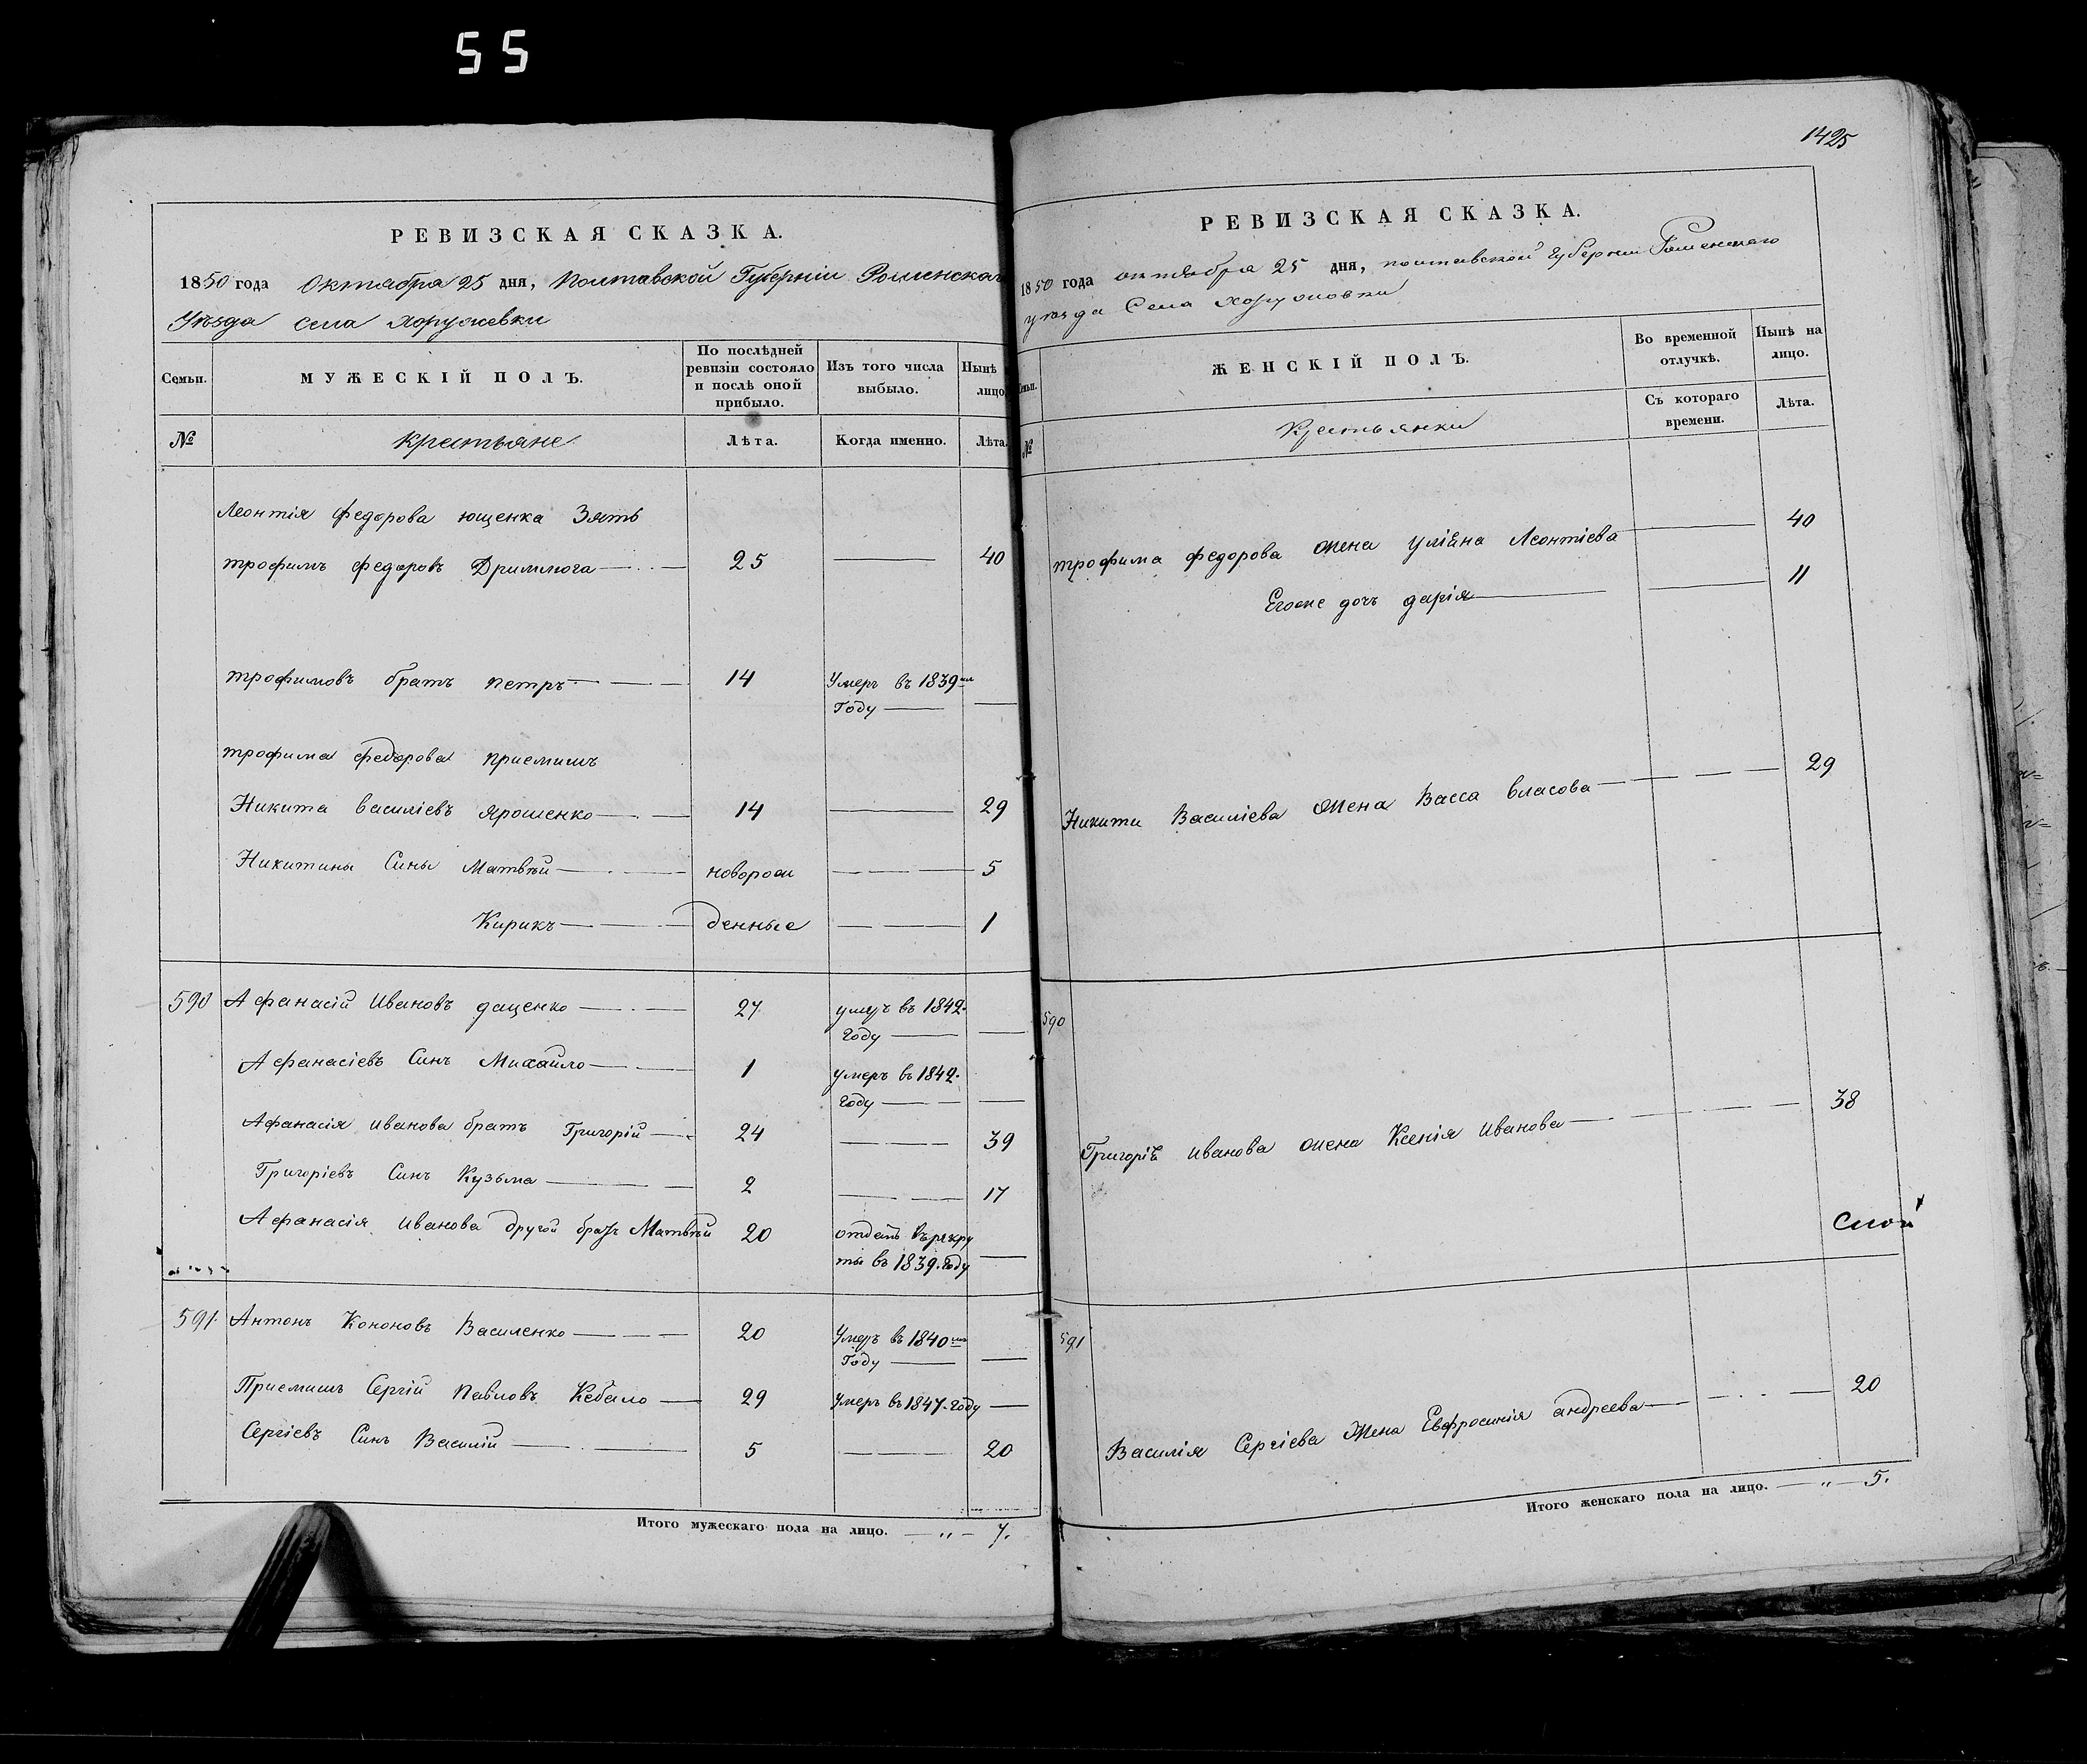 55
РЕВИЗСКАЯ СКАЗКА.
1850 года Октября 25 дня, Полтавской Губерніи Роменскаго
Уѣзда села Хоружевки
Семьи.
МУЖЕСКІЙ ПОЛЪ.
По послѣдней ревизіи состояло и послѣ оной прибыло.
Изъ того числа выбыло.
Нынѣ лицо
№
крестьяне
Лѣта.
Когда именно.
Лѣта.
Леонтія федорова ющенка Зять
трофимъ федоровъ Дримлюга 25 40
трофимовъ братъ петръ 14 Умеръ въ 1839мъ
Году
трофима федорова приемишъ
Никита василіевъ ярошенко 14 29
Никитини Сины Матвѣй новорож 5
Кирикъ денные 1
590 Афанасій Ивановъ даценко 27 умеръ въ 1842.
Году
Афанасіевъ Синъ Михайло 1 умеръ въ 1842.
Году
Афанасія иванова братъ Григорій 24 39
Григоріевъ Синъ Кузьма 2 17
Афанасія иванова другой братъ Матвѣй 20 отданъ въ рекру
ты въ 1839. Году
591. Антонъ Кононовъ Василенко 20 Умеръ въ 1840мъ
Году
Приемишъ Сергій павловъ Кебало 29 Умеръ въ 1847. Году
Сергіевъ Синъ Василій 5 20
Итого мужескаго пола на лицо. „ 7.
1425
РЕВИЗСКАЯ СКАЗКА.
1850 года октября 25 дня, полтавской губерніи Роменскаго
уѣзда Села хоружовки
ЖЕНСКІЙ ПОЛЪ.
Во временной отлучкѣ.
Нынѣ на лицо.
№
Крестьянки
Съ котораго времени.
Лѣта.
трофима федорова жена уліяна Леонтіева 40
Егоже дочъ дарія 11
Никити Василіева жена Васса власова 29
590
Григорія иванова жена Ксенія иванова 38
591
Василія Сергіева Жена Евфросинія андреева 20
Итого женскаго пола на лицо. „ 5.